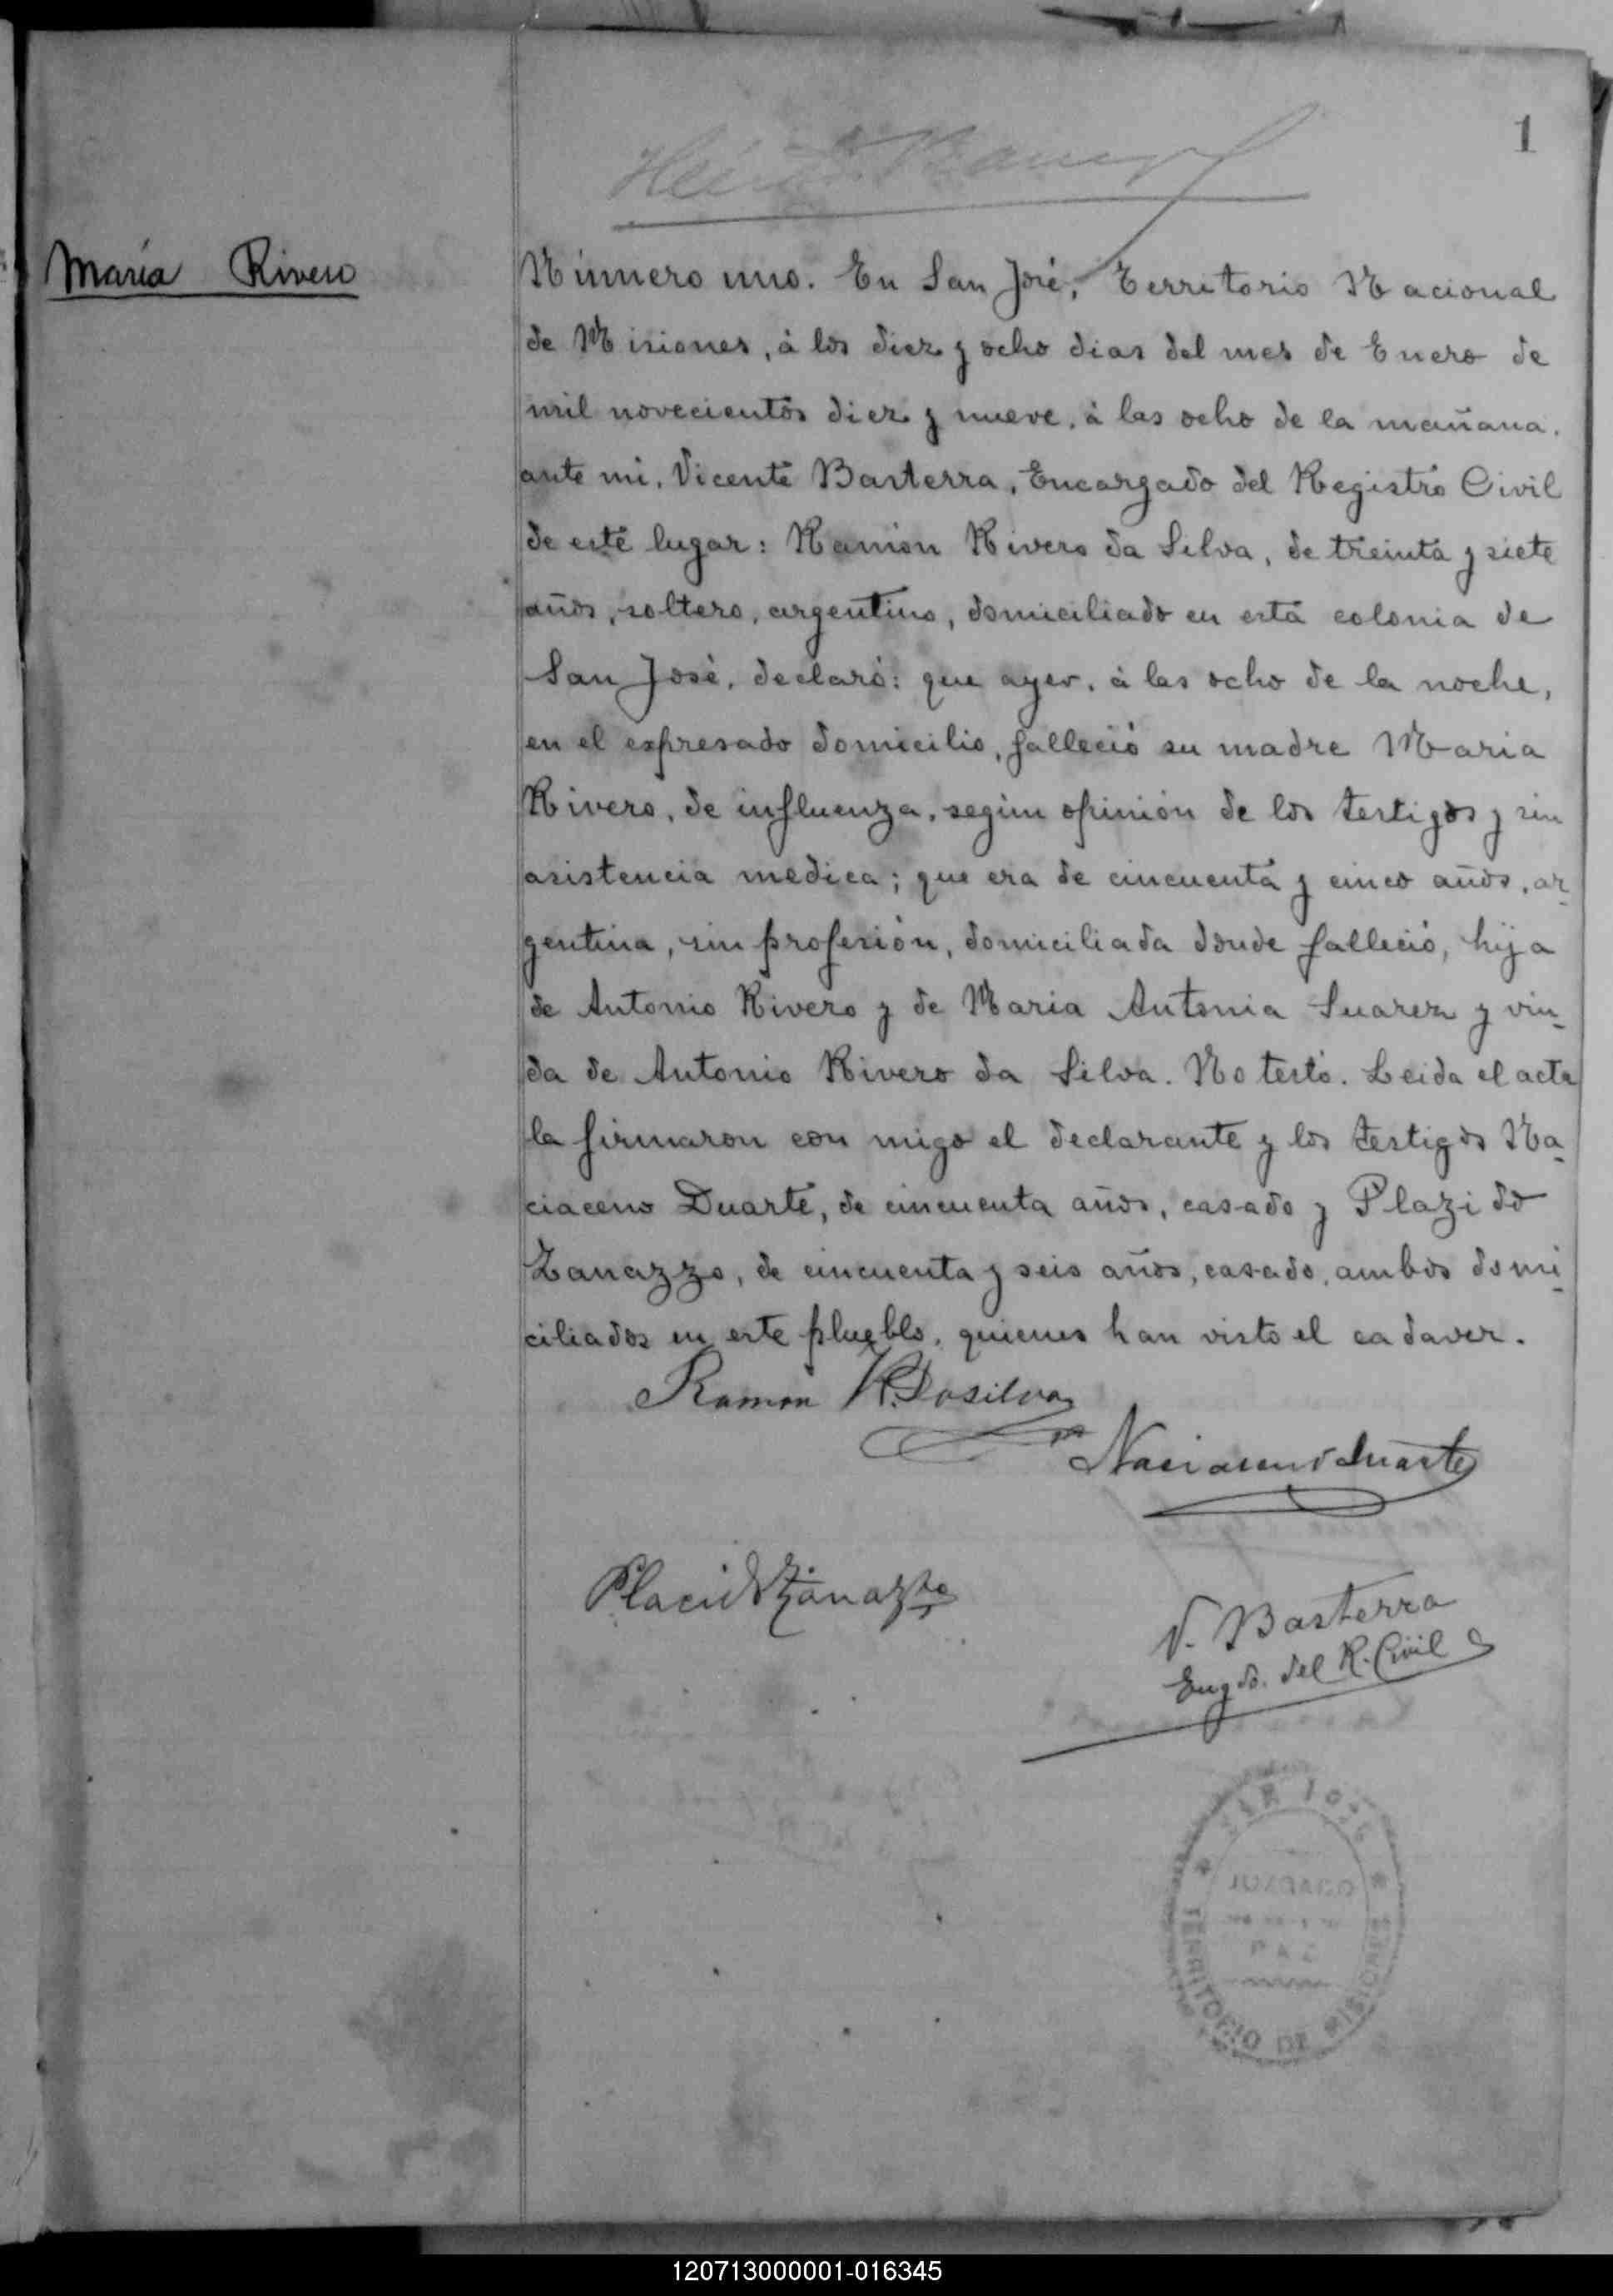 1
María Rivero
Número uno. En San José, Territorio Nacional
de Misiones, á los diez y ocho dias del mes de Enero de
mil novecientos diez y nueve, á las ocho de la mañana,
ante mi, Vicente Basterra, Encargado del Registro Civil
de este lugar: Ramón Rivero da Silva, de treinta y siete
años, soltero, argentino, domiciliado en esta colonia de
San José, declaró: que ayer, á las ocho de la noche,
en el expresado domicilio, falleció su madre Maria
Rivero, de influenza, según opinión de los testigos y sin
asistencia medica; que era de cincuenta y cinco años, ar-
gentina, sin profesión, domiciliada donde falleció, hija
de Antonio Rivero y de Maria Antonia Suarez y viu-
da de Antonio Rivero da Silva. No testó. Leida el acta
la firmaron con migo el declarante y los testigos Na-
ciaceno Duarte, de cincuenta años, casado y Plazido
Zanazzo, de cincuenta y seis años, casado, ambos domi-
ciliados en este plueblo, quienes han visto el cadaver.
Ramon R. Dasilva
Naciaceno Duarte
Placido Zanazzo
V. Basterra
Engdo. del R. Civil
SAN JOSE
JUZGADO
DE
PAZ
TERRITORIO DE MISIONES
120713000001-016345